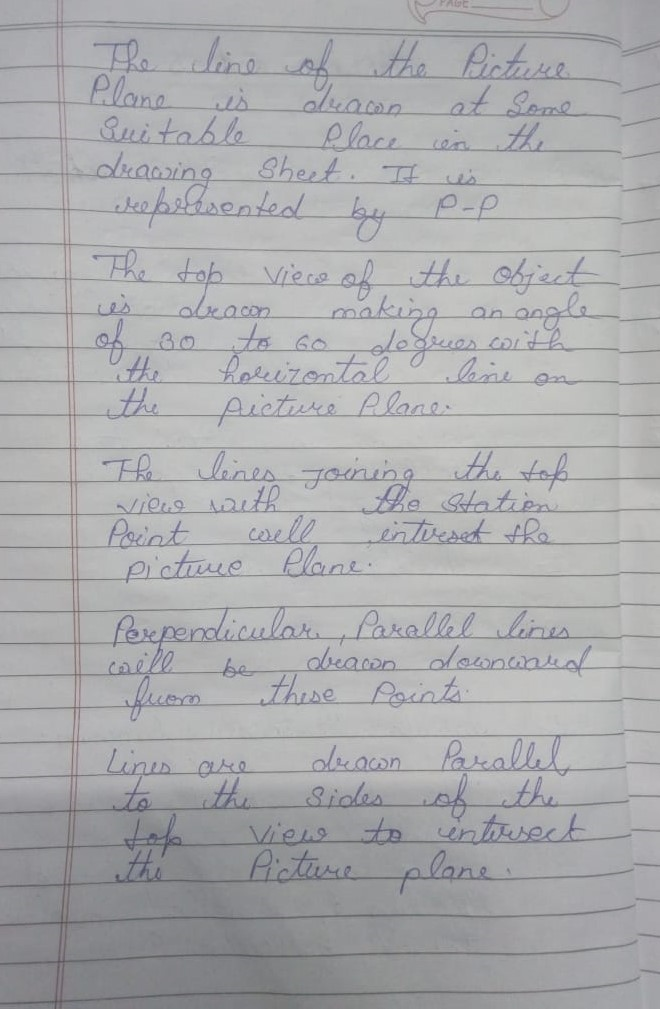 PAGE
The line of the Picture
Plane is drawn at Some
Suitable Place in the
drawing Sheet. It is
represented by P-P
The top view of the object
is drawn making an angle
of 30 to 60 degrees with
the horizontal line on
the picture Plane.
The lines joining the top
view with the station
Point will interset the
picture Plane.
Perpendicular, Parallel lines
will be drawn downward
from these Points.
Lines are drawn Parallel
to the sides of the
top view to intersect
the Picture plane.